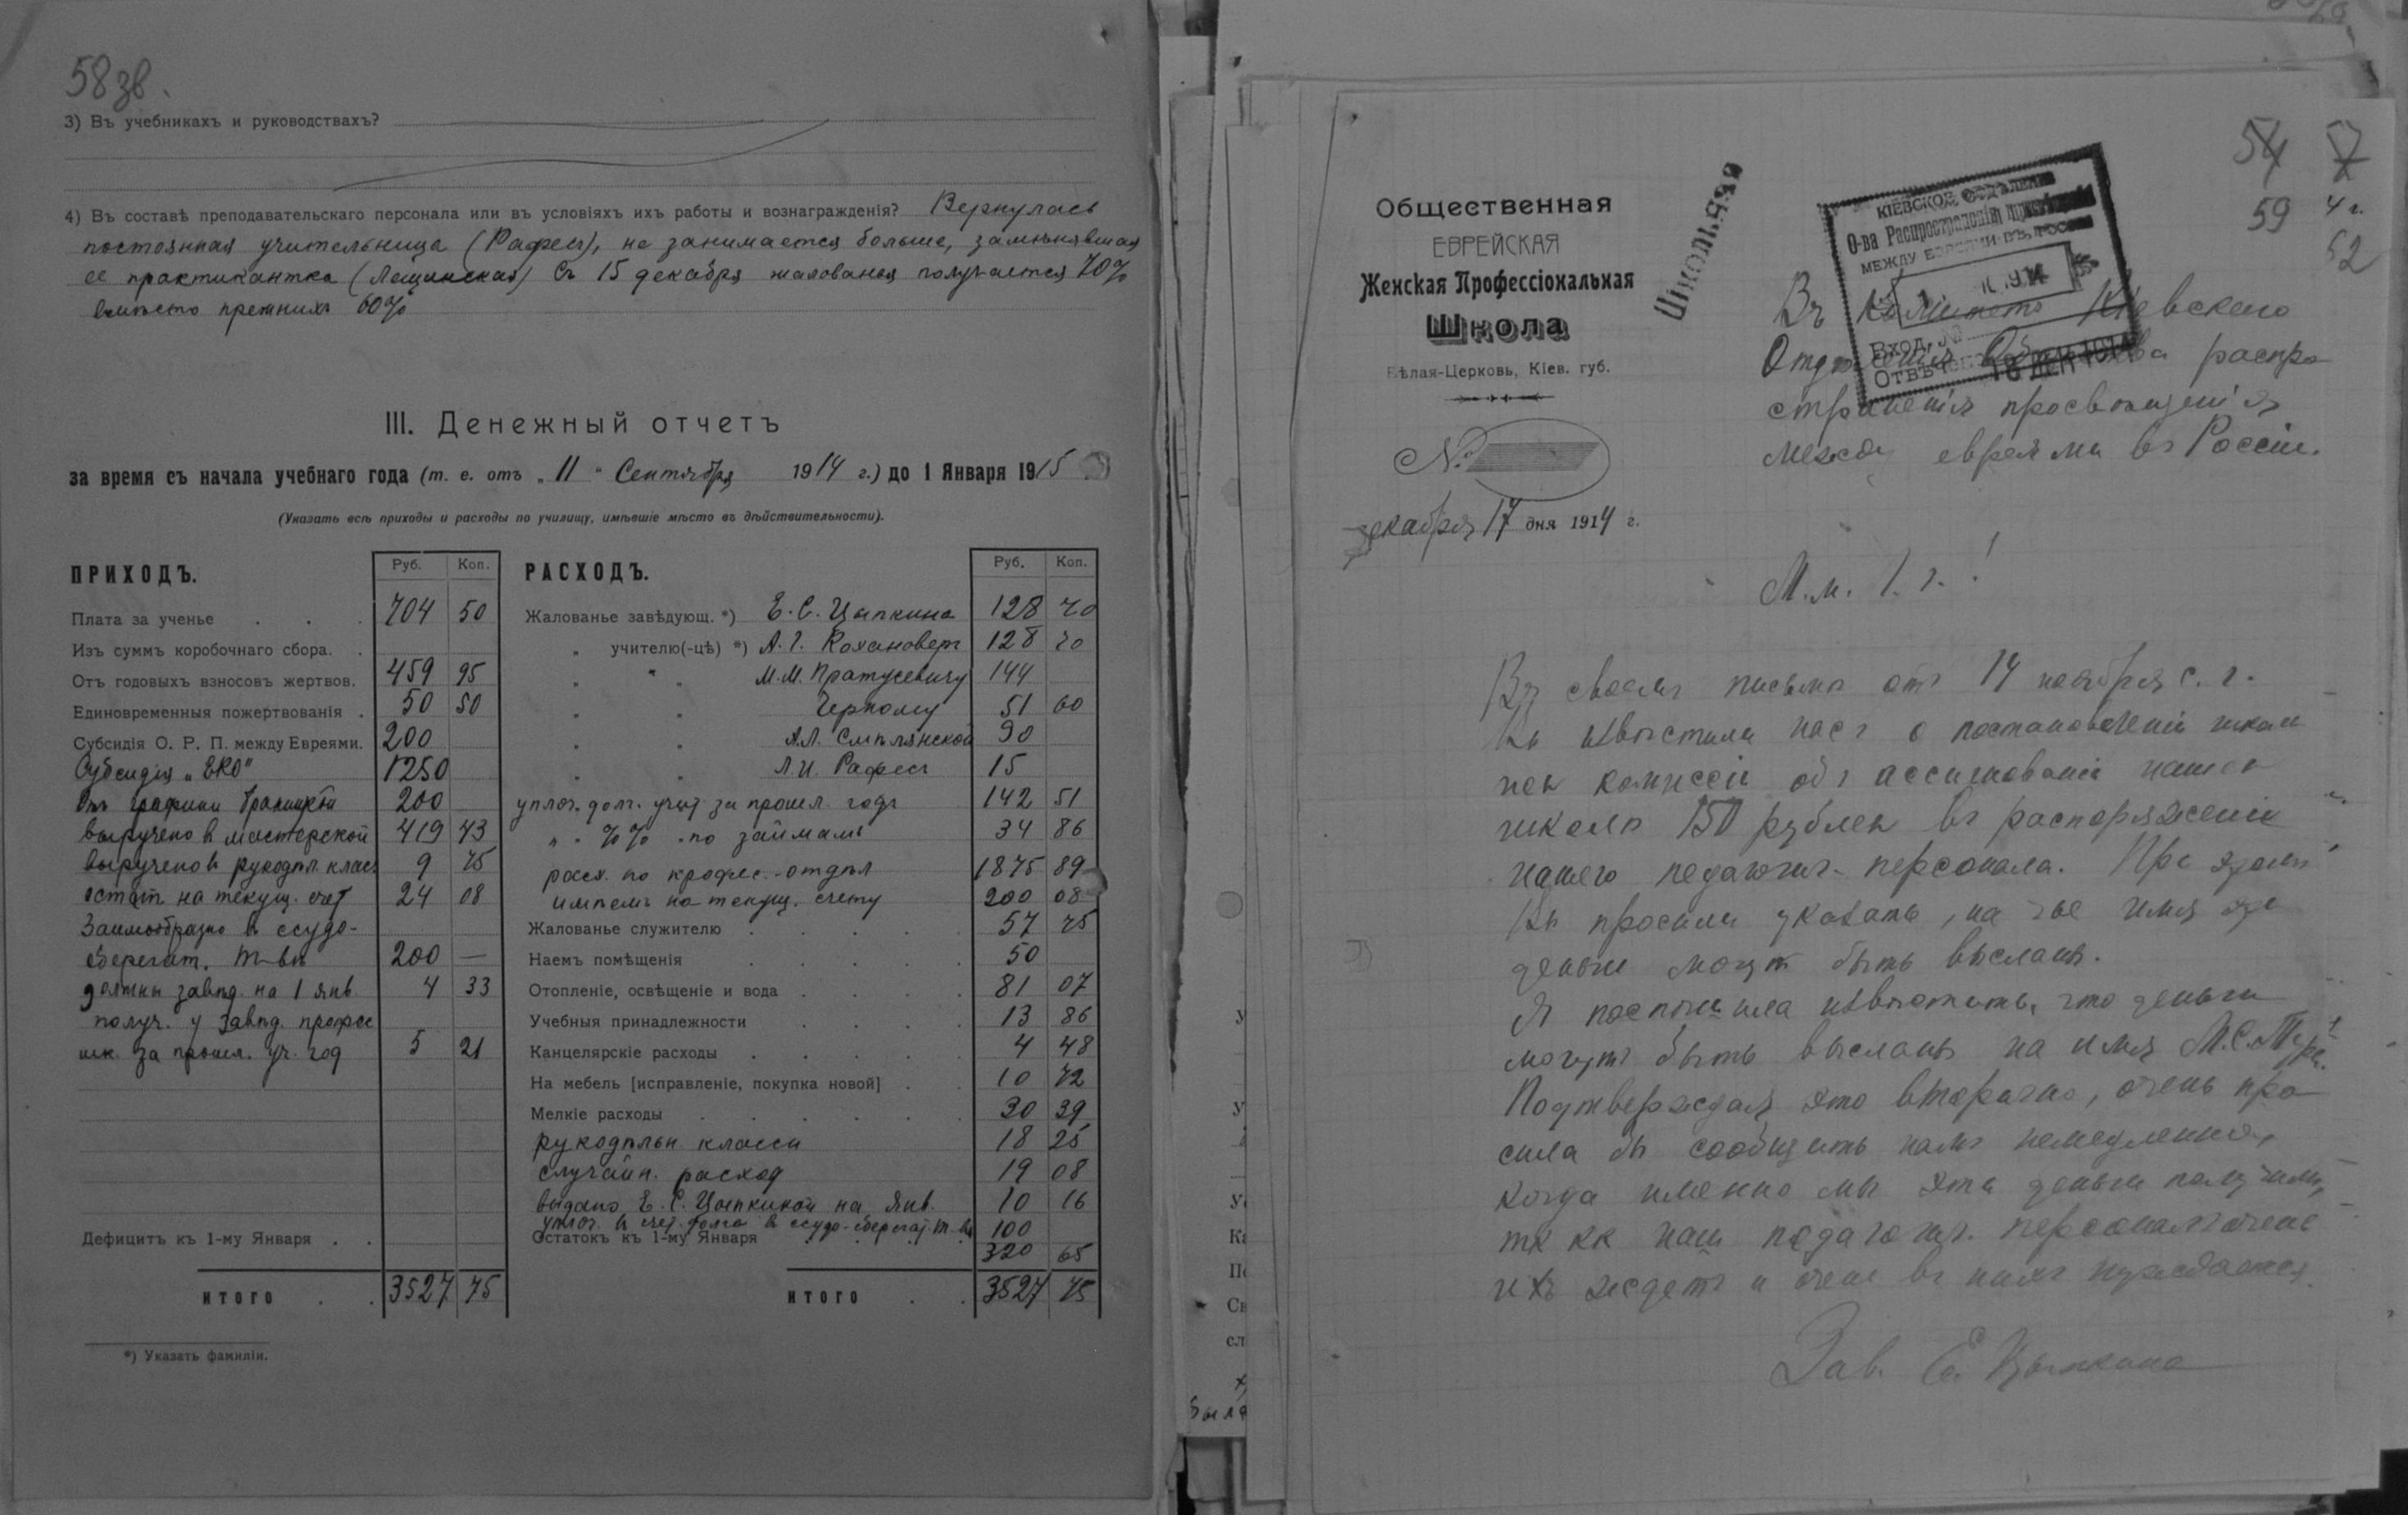 58 зв.
3) Въ учебникахъ и руководствахъ?
4) Въ составѣ преподавательскаго персонала или въ условіяхъ ихъ работы и вознагражденія? Вернулась
постоянная учительница (Рафесъ), не занимается больше, замѣнявшая
ее практикантка (Лещинская) Съ 15 декабря жалованья получается 70%
вмѣсто прежнихъ 60%
III. Денежный отчетъ
за время съ начала учебнаго года (т. е. отъ „11" Сентября 1914 г.) до 1 Января 1915
(Указать всѣ приходы и расходы по училищу, имѣвшіе мѣсто въ дѣйствительности).
ПРИХОДЪ. Руб. Коп.
Плата за ученье 704 50
Изъ суммъ коробочнаго сбора.
Отъ годовыхъ взносовъ жертвов. 459 95
Единовременныя пожертвованія 50 50
Субсидія О. Р. П. между Евреями. 200
Субсидія „ЕКО" 1250
Отъ графини Браницкой 200
выручено в мастерской 419 43
выручено в рукодѣл. клас 9 75
остат. на текущ. счет 24 08
Заимообразно в ссудо-
сберегат. т-вѣ 200 —
должны завѣд. на 1 янв. 4 33
получ. у завѣд. профес
шк. за прошл. уч. год 5 21
Дефицитъ къ 1-му Января
ИТОГО 3527 75
*) Указать фамиліи.
РАСХОДЪ. Руб. Коп.
Жалованье завѣдующ. *) Е. С. Цыпкина 128 70
„ учителю(-цѣ) *) А. Г. Кохановеръ 128 70
„ „ М. М. Пратусевичу 144
„ „ Черному 51 60
„ „ А. Л. Смѣлянской 90
„ „ Л. И. Рафесъ 15
уплоч. долг. учит за прошл. годъ 142 51
„ „ %% по займамъ 34 86
расх. по профес. отдѣл 1875 89
имѣемъ на текущ. счету 200 08
Жалованье служителю 57 75
Наемъ помѣщенія 50
Отопленіе, освѣщеніе и вода 81 07
Учебныя принадлежности 13 86
Канцелярскіе расходы 4 48
На мебель [исправленіе, покупка новой] 10 72
Мелкіе расходы 30 39
рукодѣльн. классы 18 25
случайн. расход 19 08
выдано Е. С. Цыпкиной на янв. 10 16
уплоч. в счет долга в ссудо-сберегат. т-во 100
Остатокъ къ 1-му Января 320 65
ИТОГО 3527 75
54
59
52
Общественная
ЕВРЕЙСКАЯ
Женская Профессіональная
Школа
Бѣлая-Церковь, Кіев. губ.
№
декабря 17 дня 1914 г.
Школьная
КІЕВСКОЕ ОТДѢЛЕНІЕ
О-ва Распространенія просвѣщенія
МЕЖДУ ЕВРЕЯМИ ВЪ РОССІИ
Вход. №
Отвѣч
18 ДЕК 1914
Въ Комитетъ Кіевскаго
Отдѣленія Общества распро-
страненія просвѣщенія
между евреями въ Россіи.
М.м. Г. г.!
Въ своемъ письмѣ отъ 14 ноября с. г.
Вы извѣстили насъ о постановленіи школь
ной комиссіи объ ассигнованіи нашей
школѣ 150 рублей въ распоряженіе
нашего педагогич. персонала. При этомъ
Вы просили указать, на чье имя эти
деньги могут быть высланы.
Я поспѣшила извѣстить, что деньги
могутъ быть высланы на имя М. С.
Подтверждая это вторично, очень про
сила бы сообщить намъ немедленно,
когда именно мы эти деньги получимъ,
тк кк наш педагогич. персоналъ очень
ихъ ждетъ и очень въ нихъ нуждается.
Зав. Е. Цыпкина